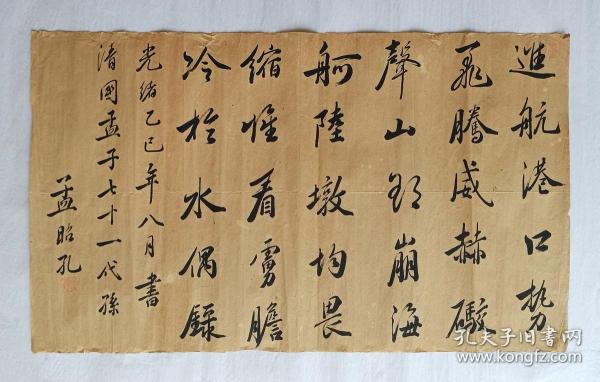 進航港口勢
飛騰威赫礮
聲山崩海
舸陸墩均畏
縮惟看虜膽
冷於水偶錄
光緒乙巳年八月書
清國孟子七十一代孫
孟昭孔
孔夫子旧书网
www.kongfz.com